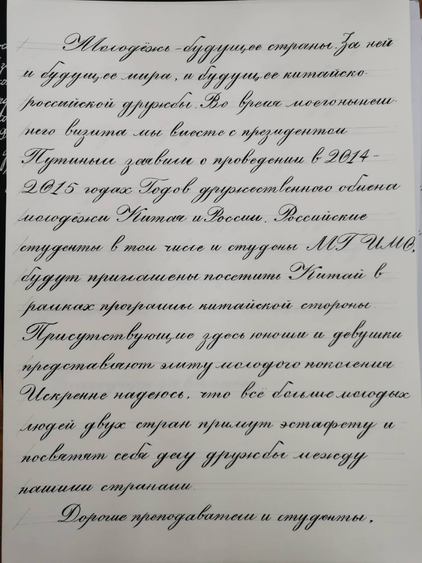 Молодёжь-будущее страны. За ней
и будущее мира, и будущее китайско-
российской дружбы. Во время моего нынеш-
него визита мы вместе с президентом
Путиным заявили о проведении в 2014-
2015 годах Годов дружественного обмена
молодёжи Китая и России. Российские
студенты в том числе и студены МГИМО,
будут приглашены посетить Китай в
рамках программы китайской стороны
Присутствующие здесь юноши и девушки
представляют элиту молодого поколения
Искренне надеюсь, что всё больше молодых
людей двух стран примут эстафету и
посвятят себя делу дружбы между
нашими странами
Дорогие преподаватели и студенты.